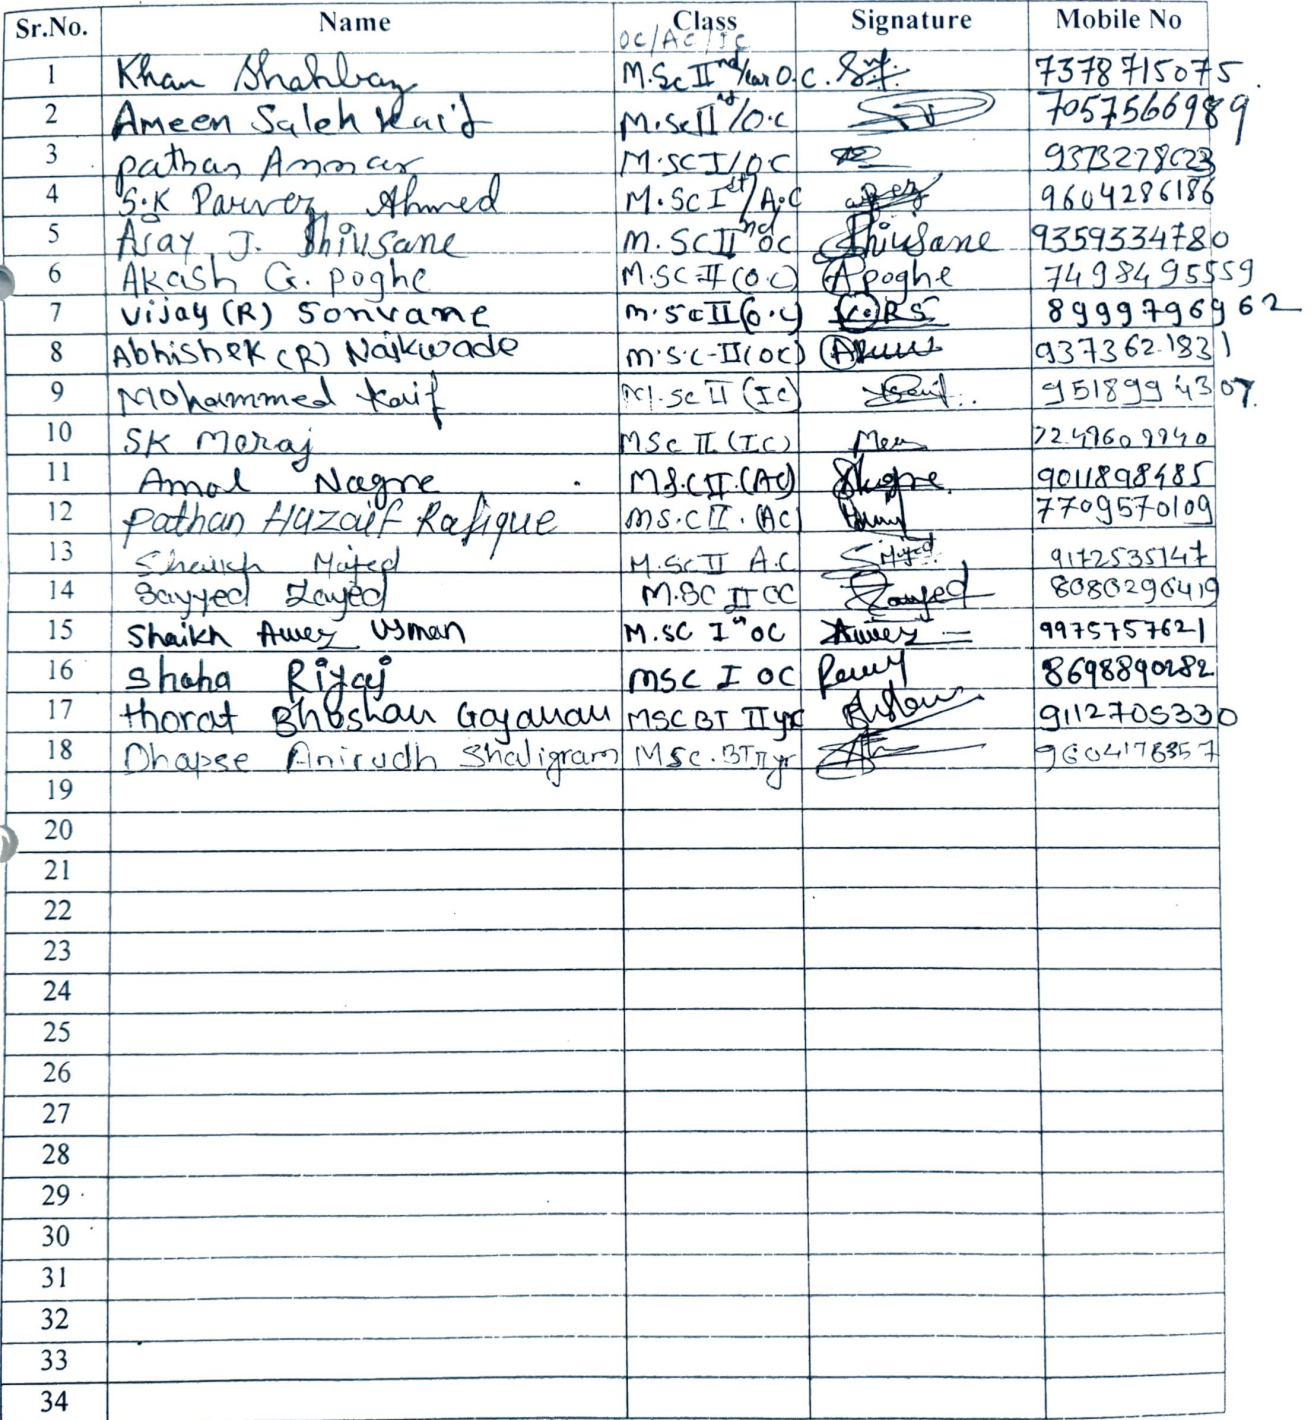 Sr.No. Name Class Signature Mobile No
OC/AC/IC
1 Khan Shahbaz M.Sc II nd/year O.C. 7378715075
2 Ameen Saleh Kaid M.Sc II nd/O.C 7057566989
3 pathan Ammar M.SC I/OC
4 S.K Parvez Ahmed M.SC I st/A.C 9604286186
5 Ajay J. Bhivsane M. SC II nd OC Bhivsane 9359334780
6 Akash G. poghe M.SC-II (O.C) Apoghe 7498495559
7 Vijay (R) Sonvane M.SC II (O.C) V.R.S. 8999796962
8 Abhishek (R) Naikwade M.S.C-II (OC) 9373621831
9 Mohammed Kaif M.Sc II (IC) Kaif 9518994307
10 SK Meraj MSc II (I.C)
11 Amol Nagne M.S.C II.(AC) 9011898485
12 Pathan Huzaif Rafique MS.C II.(AC) 7709570109
13 Shaikh Majed M.Sc II A.C S.Majed 9172535747
14 Sayyed Zayed M.SC II OC Zayed 8080296419
15 Shaikh Awez Usman M.SC I OC Awez 9975757621
16 Shaha Riyaj MSC I OC 8698890282
17 thorat Bhushan Gajanan MSC BT II yr 9112705330
18 Dhapse Anirudh Shaligram MSc.BT II yr 9604178357
19
20
21
22
23
24
25
26
27
28
29
30
31
32
33
34